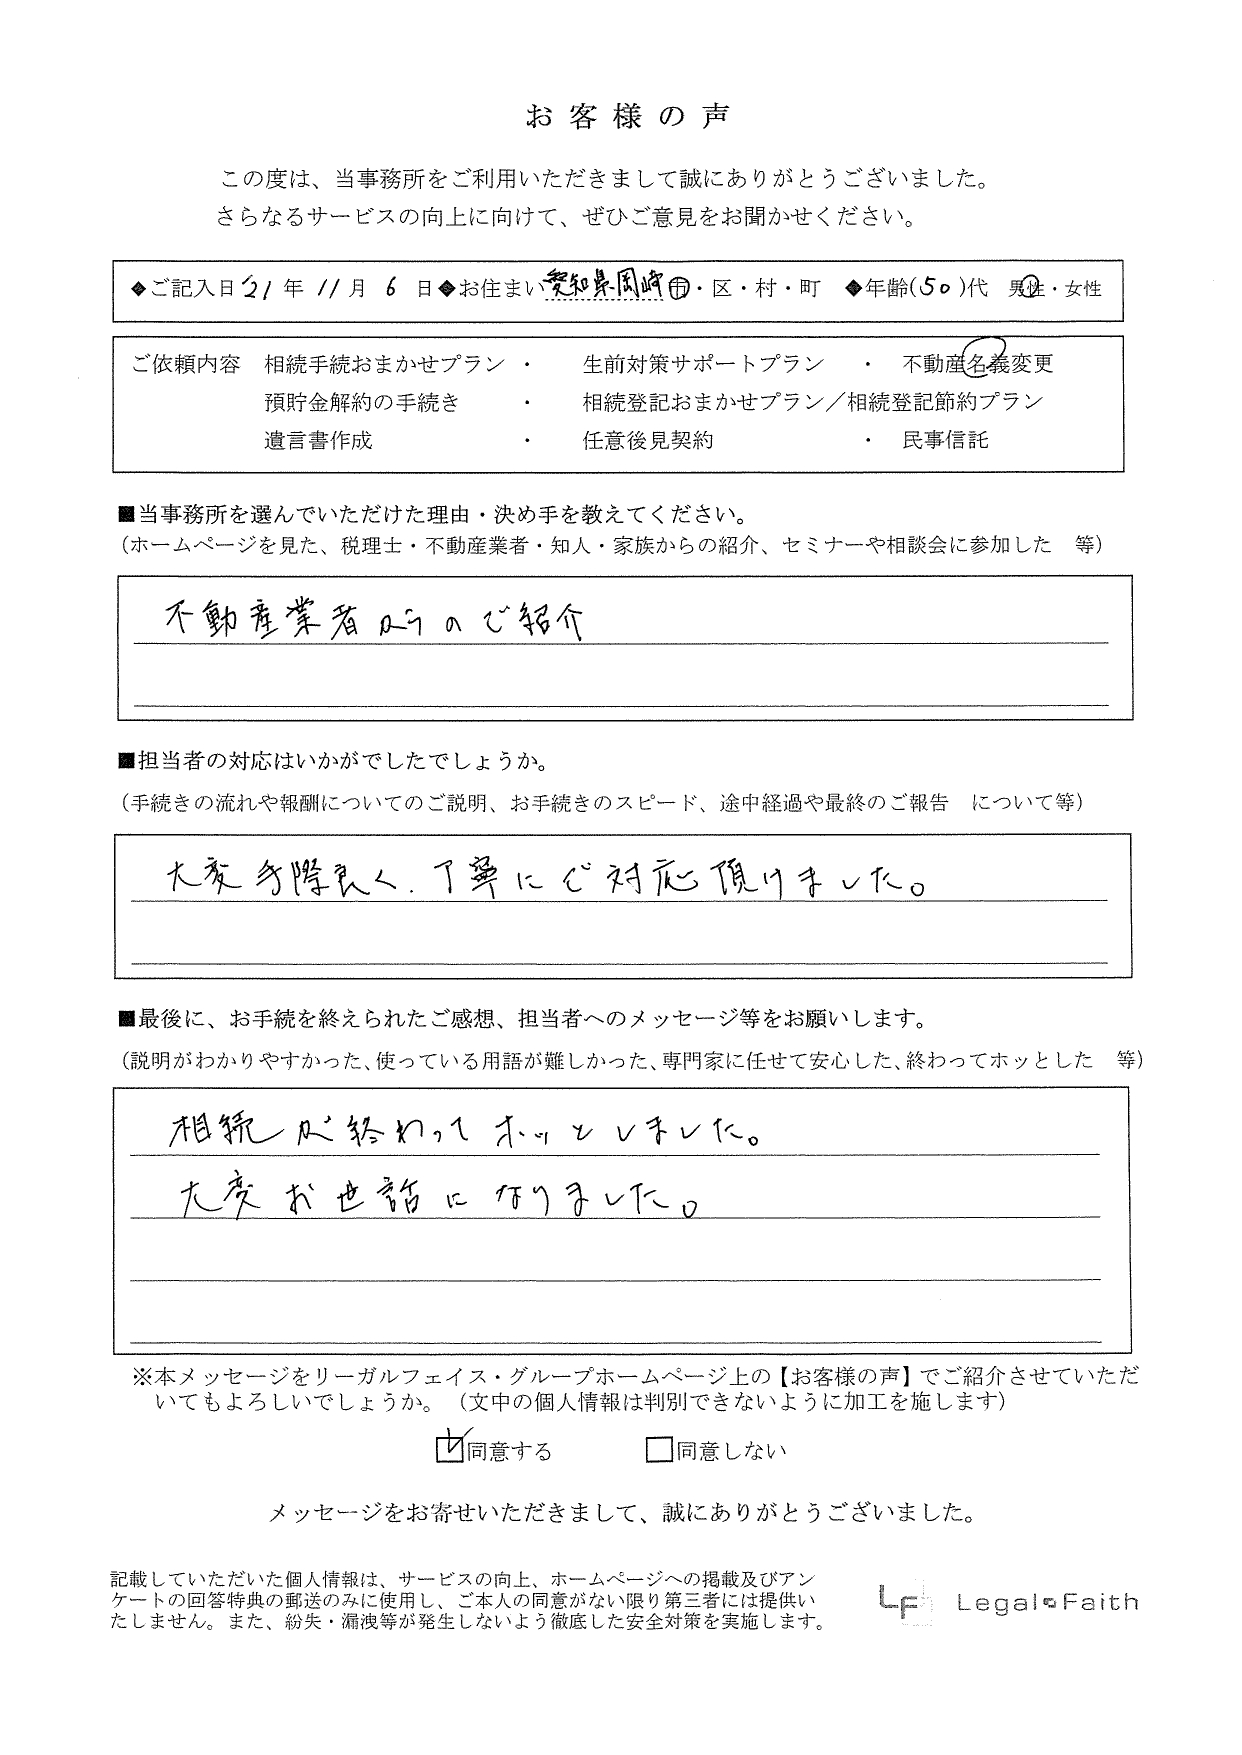 お客様の声
この度は、当事務所をご利用いただきまして誠にありがとうございました。
さらなるサービスの向上に向けて、ぜひご意見をお聞かせください。
◆ご記入日'21年11月6日◆お住まい愛知県岡崎市・区・村・町 ◆年齢(50)代 男性・女性
ご依頼内容 相続手続おまかせプラン ・ 生前対策サポートプラン ・ 不動産名義変更
預貯金解約の手続き ・ 相続登記おまかせプラン／相続登記節約プラン
遺言書作成 ・ 任意後見契約 ・ 民事信託
■当事務所を選んでいただけた理由・決め手を教えてください。
（ホームページを見た、税理士・不動産業者・知人・家族からの紹介、セミナーや相談会に参加した 等）
不動産業者からのご紹介
■担当者の対応はいかがでしたでしょうか。
（手続きの流れや報酬についてのご説明、お手続きのスピード、途中経過や最終のご報告 について等）
大変手際良く、丁寧にご対応頂けました。
■最後に、お手続を終えられたご感想、担当者へのメッセージ等をお願いします。
（説明がわかりやすかった、使っている用語が難しかった、専門家に任せて安心した、終わってホッとした 等）
相続が終わってホッとしました。
大変お世話になりました。
※本メッセージをリーガルフェイス・グループホームページ上の【お客様の声】でご紹介させていただ
いてもよろしいでしょうか。（文中の個人情報は判別できないように加工を施します）
☑同意する □同意しない
メッセージをお寄せいただきまして、誠にありがとうございました。
記載していただいた個人情報は、サービスの向上、ホームページへの掲載及びアン
ケートの回答特典の郵送のみに使用し、ご本人の同意がない限り第三者には提供い
たしません。また、紛失・漏洩等が発生しないよう徹底した安全対策を実施します。
LF Legal Faith